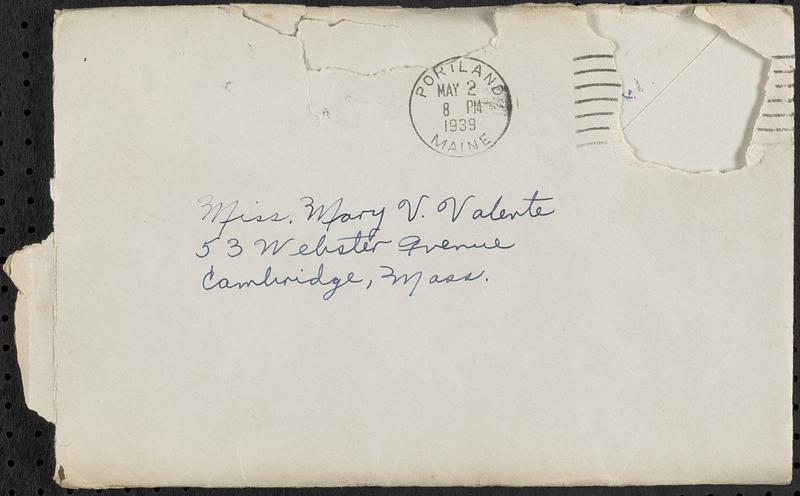 PORTLAND
MAY 2
8 PM
1939
MAINE
Miss. Mary V. Valente
53 Webster Avenue
Cambridge, Mass.